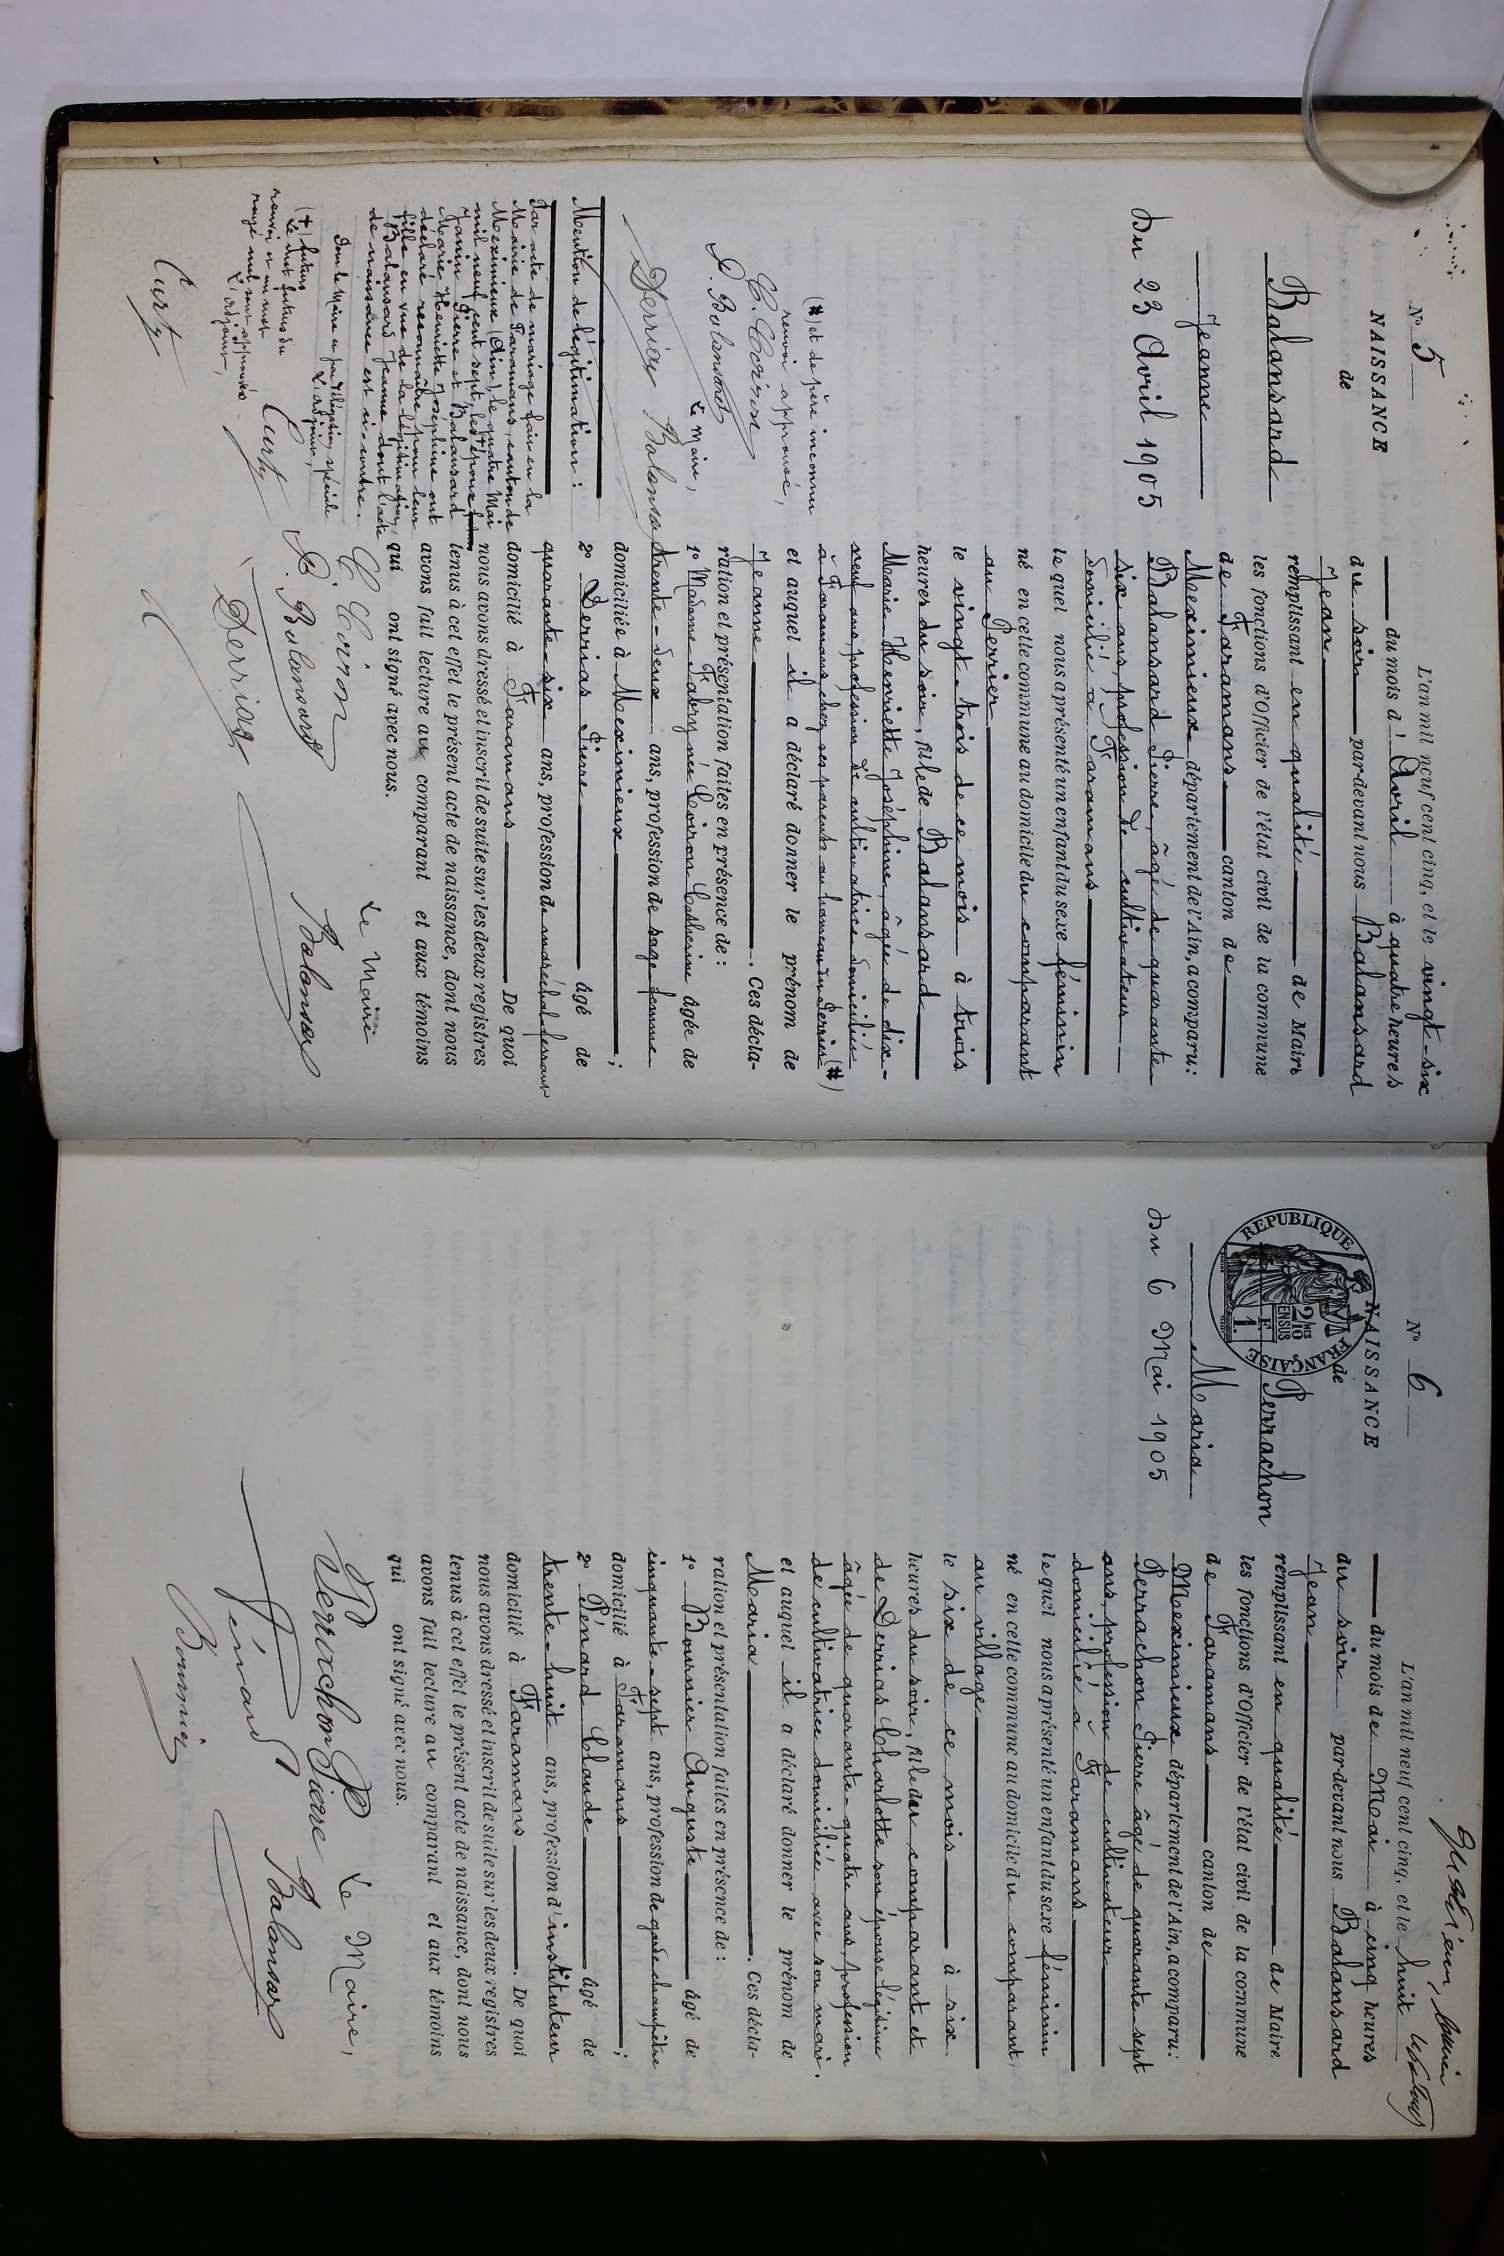 N° 5
NAISSANCE
de
Balansard
Jeanne
Du 23 Avril 1905
(#) et de père inconnu
renvoi approuvé,
C. Coiron
P. Balansard
Le Maire,
Derrias Balansard
Mention de légitimation :
Par acte de mariage fait en la
Mairie de Faramans, canton de
Meximieux (Ain), le quatre Mai
mil neuf cent sept, les (+) époux
Janin Pierre et Balansard
Marie Henriette Joséphine ont
déclaré reconnaître pour leur
fille en vue de la légitimation,
Balansard Jeanne dont l'acte
de naissance est ci-contre.
Pour le Maire et par délégation spéciale
L'adjoint,
Curty
(+) futurs
Le mot futurs du
renvoi et un mot
rayé nul sont approuvés
L'adjoint,
Curty
L'an mil neuf cent cinq, et le vingt-six
du mois d'Avril à quatre heures
du soir par-devant nous Balansard
Jean
remplissant en qualité de Maire
les fonctions d'Officier de l'état civil de la commune
de Faramans canton de
Meximieux département de l'Ain, a comparu:
Balansard Pierre, âgé de quarante-
six ans, profession de cultivateur
domicilié à Faramans
lequel nous a présenté un enfant du sexe féminin
né en cette commune au domicile du comparant
au Perrier
le vingt-trois de ce mois à trois
heures du soir, fille de Balansard
Marie Henriette Joséphine, âgée de dix-
neuf ans, profession de cultivatrice domiciliée
à Faramans chez ses parents au hameau du Perrier (#)
et auquel il a déclaré donner le prénom de
Jeanne. Ces décla-
ration et présentation faites en présence de :
1° Madame Fabry née Coiron Catherine âgée de
trente-deux ans, profession de sage femme
domiciliée à Meximieux;
2° Derrias Pierre âgé de
quarante-six ans, profession de maréchal-ferrant
domicilié à Faramans. De quoi
nous avons dressé et inscrit de suite sur les deux registres
tenus à cet effet le présent acte de naissance, dont nous
avons fait lecture au comparant et aux témoins
qui ont signé avec nous.
C. Coiron
Le Maire
P. Balansard
Balansard
Derrias
N° 6
NAISSANCE
de
REPUBLIQUE FRANÇAISE
2/10 MES EN SUS
1 F.
Perrachon
Maria
Du 6 Mai 1905
L'an mil neuf cent cinq, et le huit
du mois de Mai à cinq heures
du soir par-devant nous Balansard
Jean
remplissant en qualité de Maire
les fonctions d'Officier de l'état civil de la commune
de Faramans canton de
Meximieux département de l'Ain, a comparu:
Perrachon Pierre âgé de quarante-sept
ans, profession de cultivateur
domicilié à Faramans
lequel nous a présenté un enfant du sexe féminin
né en cette commune au domicile du comparant,
au village
le six de ce mois à six
heures du soir, fille du comparant et
de Derrias Charlotte son épouse légitime
âgée de quarante-quatre ans, profession
de cultivatrice domiciliée avec son mari.
et auquel il a déclaré donner le prénom de
Maria. Ces décla-
ration et présentation faites en présence de :
1° Bournier Auguste âgé de
cinquante-sept ans, profession de garde champêtre
domicilié à Faramans;
2° Pénard Claude âgé de
trente-huit ans, profession d'instituteur
domicilié à Faramans. De quoi
nous avons dressé et inscrit de suite sur les deux registres
tenus à cet effet le présent acte de naissance, dont nous
avons fait lecture au comparant et aux témoins
qui ont signé avec nous.
Le Maire,
Perrachon Pierre
Balansard
Pénard
Bournier